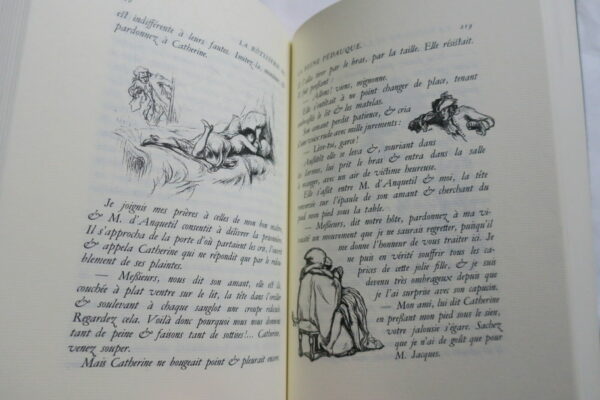 est indifférente à leurs fautes. Imitez-la,
pardonnez à Catherine.
Je joignis mes prières à celles de mon bon maître,
& M. d'Anquetil consentit à délivrer la prisonnière.
Il s'approcha de la porte d'où partaient les cris,
& appela Catherine qui ne répondit que par le redou-
blement de ses plaintes.
— Messieurs, nous dit son amant, elle est là
couchée à plat ventre sur le lit, la tête dans l'oreiller
& soulevant à chaque sanglot une croupe ridicule.
Regardez cela. Voilà donc pourquoi nous nous donnons
tant de peine & faisons tant de sottises!... Catherine,
venez souper.
Mais Catherine ne bougeait point & pleurait encore.
LA RÔTISSERIE DE
LA REINE PÉDAUQUE.
219
Il l'alla tirer par le bras, par la taille. Elle résistait.
Il fut pressant:
— Allons! viens, mignonne.
Elle s'entêtait à ne point changer de place, tenant
embrassés le lit & les matelas.
Son amant perdit patience, & cria
d'une voix rude avec mille jurements:
— Lève-toi, garce!
Aussitôt elle se leva &, souriant dans
les larmes, lui prit le bras & entra dans la salle
à manger, avec un air de victime heureuse.
Elle s'assit entre M. d'Anquetil & moi, la tête
inclinée sur l'épaule de son amant & cherchant du
pied mon pied sous la table.
— Messieurs, dit notre hôte, pardonnez à ma vi-
vacité un mouvement que je ne saurais regretter, puisqu'il
me donne l'honneur de vous traiter ici. Je
puis en vérité souffrir tous les ca-
prices de cette jolie fille, & je suis
devenu très ombrageux depuis que
je l'ai surprise avec son capucin.
— Mon ami, lui dit Catherine
en pressant mon pied sous le sien,
votre jalousie s'égare. Sachez
que je n'ai de goût que pour
M. Jacques.